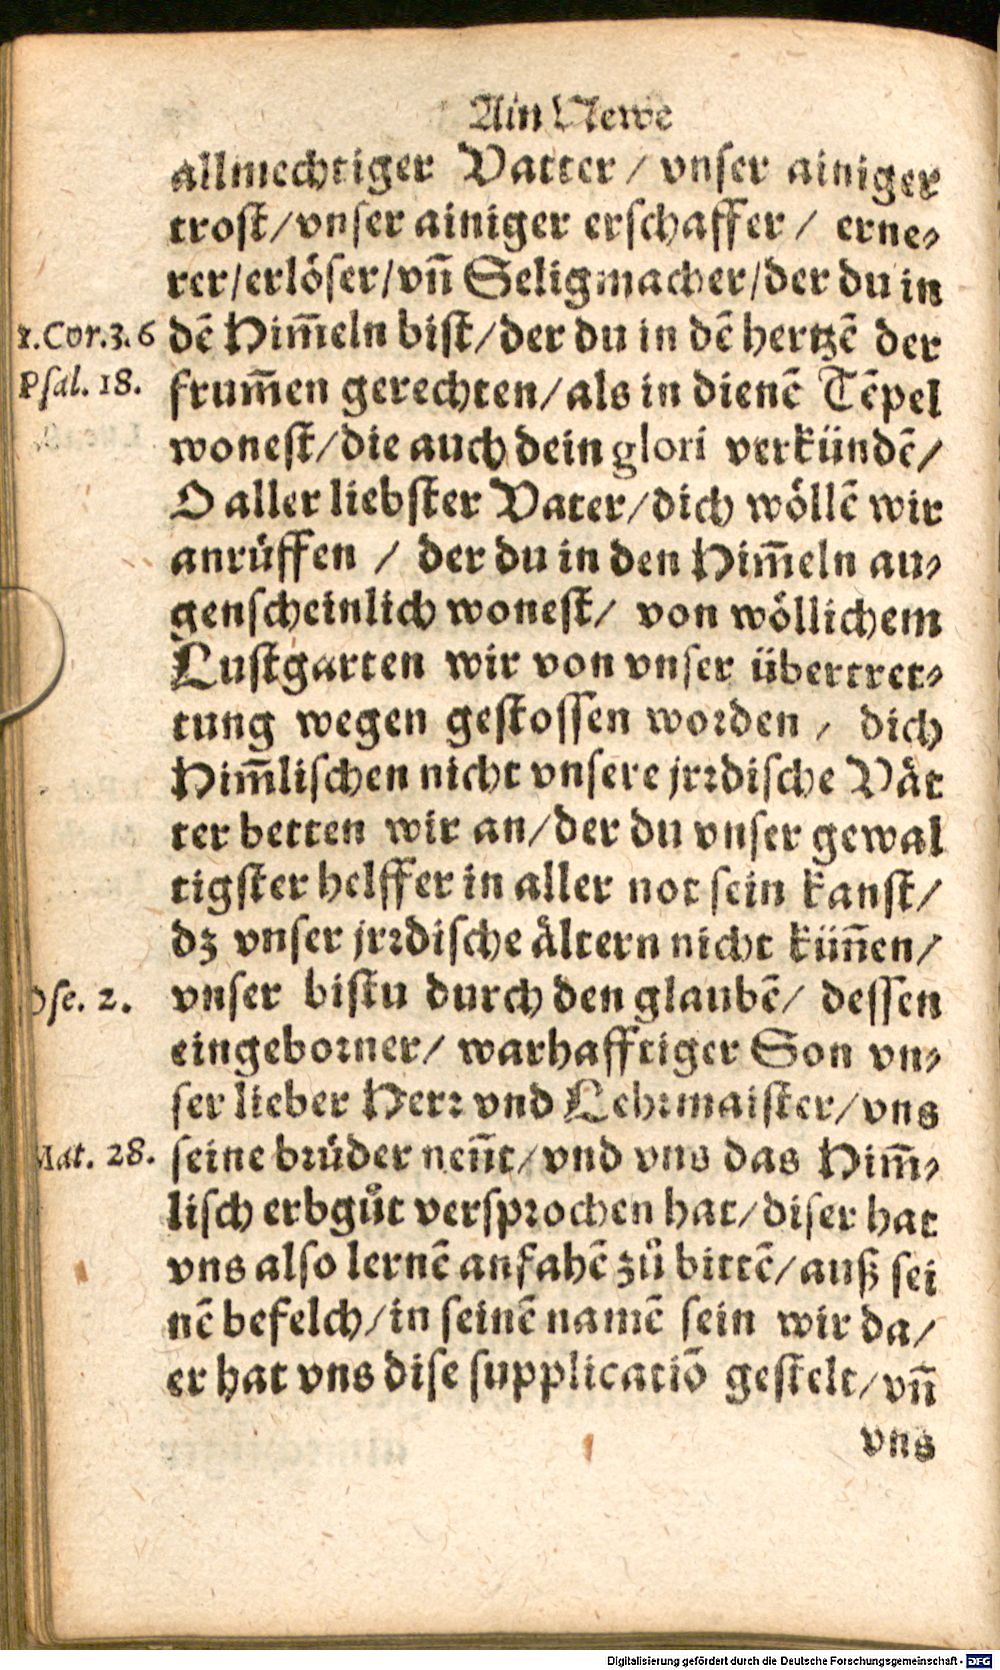 Ain Newe
allmechtiger Vatter / vnser ainiger
trost/vnser ainiger erschaffer / erne⸗
rer/erlöser/vñ Seligmacher/der du in
1.Cor.3.6 dē Him̄eln bist/der du in dē hertzē der
Psal. 18. frum̄en gerechten/als in dienē Tēpel
wonest/die auch dein glori verkündē/
O aller liebster Vater/dich wöllē wir
anrüffen / der du in den Him̄eln au⸗
genscheinlich wonest/ von wöllichem
Lustgarten wir von vnser übertret⸗
tung wegen gestossen worden / dich
Him̄lischen nicht vnsere jrrdische Vät
ter betten wir an/der du vnser gewal
tigster helffer in aller not sein kanst/
dz vnser jrrdische ältern nicht küñen/
Ose. 2. vnser bistu durch den glaubē/ dessen
eingeborner/ warhafftiger Son vn⸗
ser lieber Herr vnd Lehrmaister/vns
Mat. 28. seine brüder neñt/vnd vns das Him̄⸗
lisch erbgůt versprochen hat/diser hat
vns also lernē anfahē zů bittē/auß sei
nē befelch/in seinē namē sein wir da/
er hat vns dise supplicatiō gestelt/vñ
vns
Digitalisierung gefördert durch die Deutsche Forschungsgemeinschaft - DFG